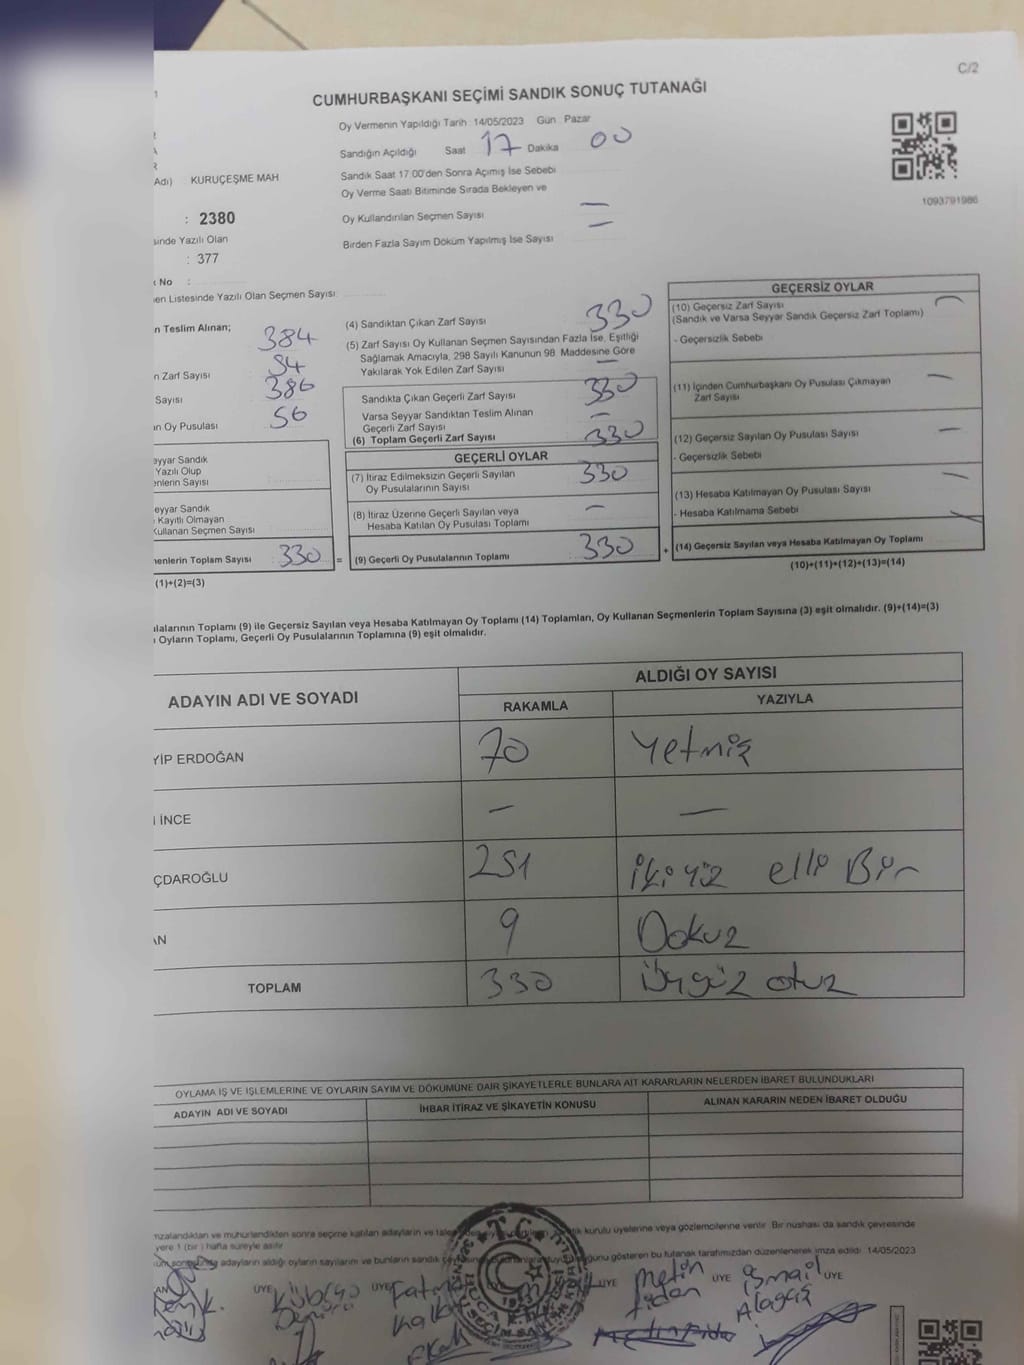 C/2
CUMHURBAŞKANI SEÇİMİ SANDIK SONUÇ TUTANAĞI
Oy Vermenin Yapıldığı Tarih 14/05/2023 Gün Pazar
Sandığın Açıldığı Saat 17 Dakika 00
Adı) KURUÇEŞME MAH
Sandık Saat 17:00'den Sonra Açımış İse Sebebi
Oy Verme Saati Bitiminde Sırada Bekleyen ve
1093791986
: 2380
Oy Kullandırılan Seçmen Sayısı —
sinde Yazılı Olan
Birden Fazla Sayım Döküm Yapılmış İse Sayısı —
: 377
No :
Listesinde Yazılı Olan Seçmen Sayısı
n Teslim Alınan;
384
54
n Zarf Sayısı
386
Sayısı
56
ın Oy Pusulası
eyyar Sandık
Yazılı Olup
enlerin Sayısı
eyyar Sandık
Kayıtlı Olmayan
Kullanan Seçmen Sayısı
nenlerin Toplam Sayısı 330 =
(1)+(2)=(3)
(4) Sandıktan Çıkan Zarf Sayısı 330
(5) Zarf Sayısı Oy Kullanan Seçmen Sayısından Fazla İse, Eşitliği
Sağlamak Amacıyla, 298 Sayılı Kanunun 98. Maddesine Göre
Yakılarak Yok Edilen Zarf Sayısı —
Sandıkta Çıkan Geçerli Zarf Sayısı 330
Varsa Seyyar Sandıktan Teslim Alınan
Geçerli Zarf Sayısı —
(6) Toplam Geçerli Zarf Sayısı 330
GEÇERLİ OYLAR
(7) İtiraz Edilmeksizin Geçerli Sayılan
Oy Pusulalarının Sayısı 330
(8) İtiraz Üzerine Geçerli Sayılan veya
Hesaba Katılan Oy Pusulası Toplamı —
(9) Geçerli Oy Pusulalarının Toplamı 330 +
GEÇERSİZ OYLAR
(10) Geçersiz Zarf Sayısı —
(Sandık ve Varsa Seyyar Sandık Geçersiz Zarf Toplamı)
- Geçersizlik Sebebi
(11) İçinden Cumhurbaşkanı Oy Pusulası Çıkmayan
Zarf Sayısı —
(12) Geçersiz Sayılan Oy Pusulası Sayısı —
- Geçersizlik Sebebi
(13) Hesaba Katılmayan Oy Pusulası Sayısı —
- Hesaba Katılmama Sebebi
(14) Geçersiz Sayılan veya Hesaba Katılmayan Oy Toplamı —
(10)+(11)+(12)+(13)=(14)
ulalarının Toplamı (9) ile Geçersiz Sayılan veya Hesaba Katılmayan Oy Toplamı (14) Toplamları, Oy Kullanan Seçmenlerin Toplam Sayısına (3) eşit olmalıdır. (9)+(14)=(3)
Oyların Toplamı, Geçerli Oy Pusulalarının Toplamına (9) eşit olmalıdır.
ADAYIN ADI VE SOYADI
ALDIĞI OY SAYISI
RAKAMLA YAZIYLA
YİP ERDOĞAN 70 Yetmiş
İNCE — —
ÇDAROĞLU 251 iki yüz elli Bir
AN 9 Dokuz
TOPLAM 330 üçyüz otuz
OYLAMA İŞ VE İŞLEMLERİNE VE OYLARIN SAYIM VE DÖKÜMÜNE DAİR ŞİKAYETLERLE BUNLARA AİT KARARLARIN NELERDEN İBARET BULUNDUKLARI
ADAYIN ADI VE SOYADI İHBAR İTİRAZ VE ŞİKAYETİN KONUSU ALINAN KARARIN NEDEN İBARET OLDUĞU
mzalandıktan ve mühürlendikten sonra seçime katılan adayların ve kurulu üyelerine veya gözlemcilerine verilir. Bir nüshası da sandık çevresinde
yere 1 (bir) hafta süreyle asılır
adayların aldığı oyların sayılarını ve bunların sandık gösteren bu tutanak tarafımızdan düzenlenerek imza edildi. 14/05/2023
T.C.
ÜYE ÜYE ÜYE Metin ÜYE İsmail ÜYE
Fidan Alagaş